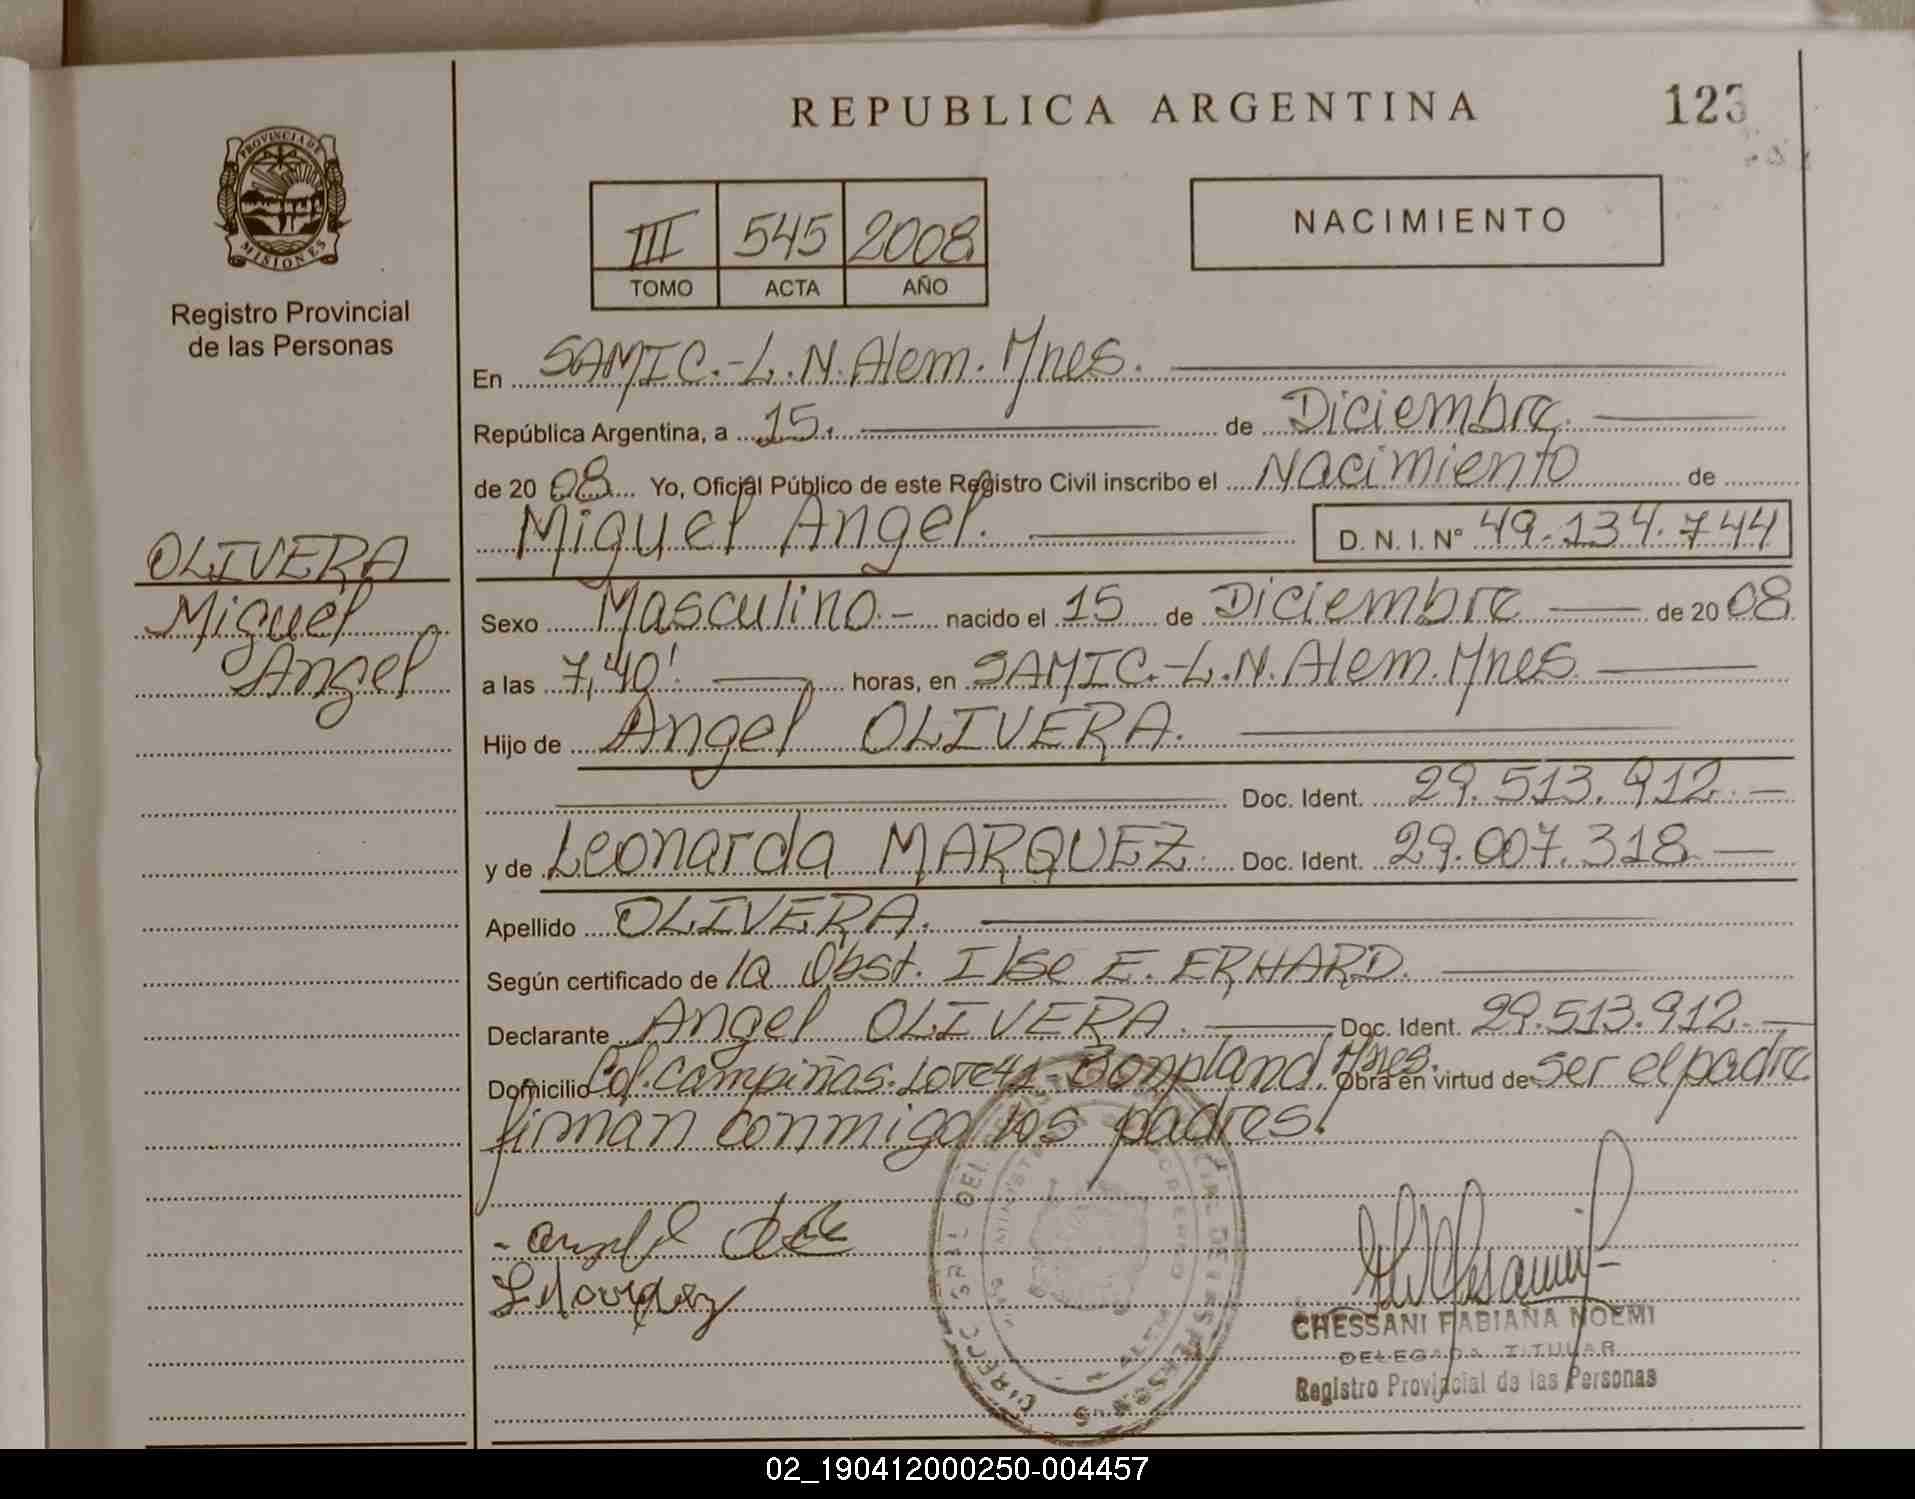 REPUBLICA ARGENTINA
123
PROVINCIA DE MISIONES
Registro Provincial
de las Personas
III 545 2008
TOMO ACTA AÑO
NACIMIENTO
En SAMIC.-L.N.Alem.Mnes.
República Argentina, a 15. de Diciembre.
de 2008 Yo, Oficial Público de este Registro Civil inscribo el Nacimiento de
Miguel Angel. D. N. I. N° 49.134.744
OLIVERA
Miguel
Angel
Sexo Masculino.- nacido el 15 de Diciembre de 2008
a las 7,40'. horas, en SAMIC.-L.N.Alem.Mnes
Hijo de Angel OLIVERA.
Doc. Ident. 29.513.912.-
y de Leonarda MARQUEZ. Doc. Ident. 29.007.318.-
Apellido OLIVERA.
Según certificado de la Obst. Ilse E. ERHARD.
Declarante Angel OLIVERA. Doc. Ident. 29.513.912.-
Domicilio Col. Campiñas. Bonpland. Mnes. Obra en virtud de ser el padre
firman conmigo los padres.
CHESSANI FABIANA NOEMI
DELEGADA TITULAR
Registro Provincial de las Personas
02_190412000250-004457